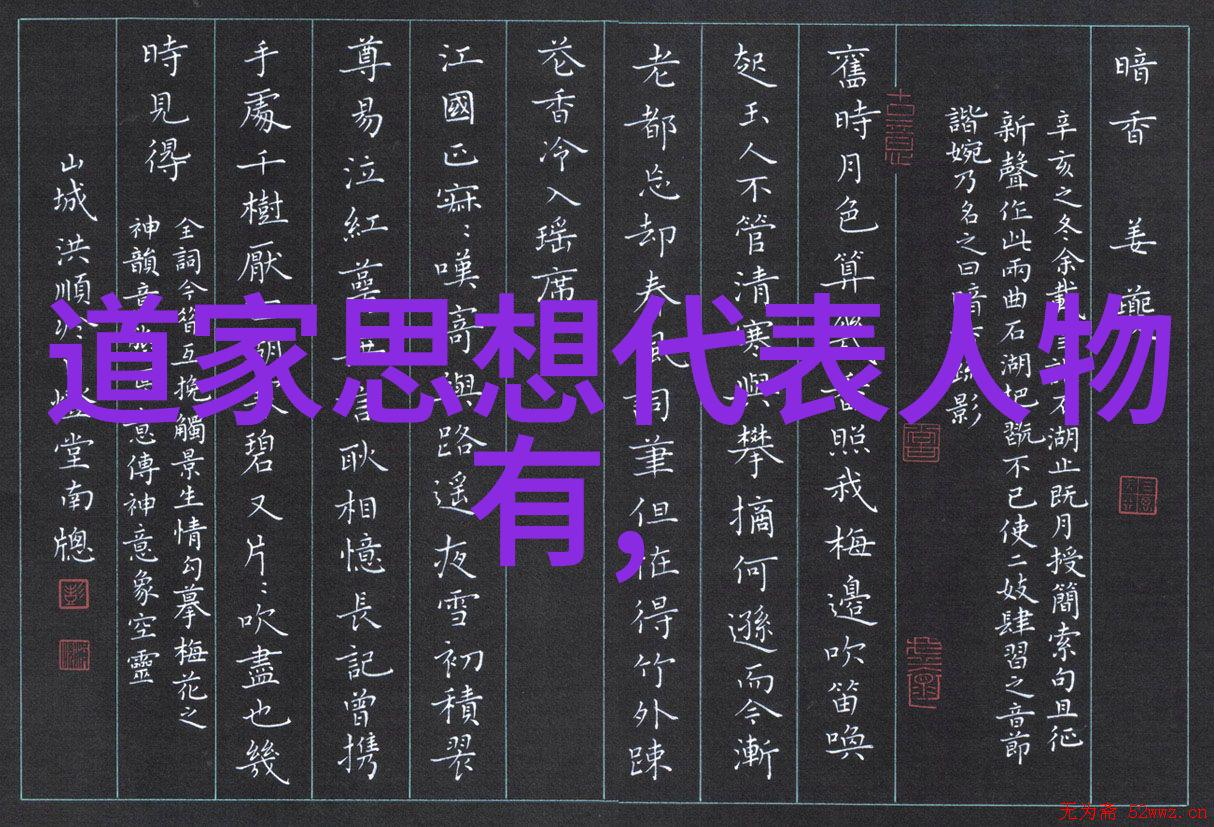 暗香 姜夔
辛亥之冬余載
石湖止既月授簡索句且征
新聲作此兩曲石湖把翫不已使二妓肆習之音節
諧婉乃名之曰暗
影
舊時月色算
照我梅邊吹笛喚
起玉人不管清寒與攀摘何遜而今漸
老都忘却春風詞筆但恠得竹外疎
花香冷入瑤席
江國正寂:嘆寄與路遙夜雪初積翠
尊易泣紅萼無言耿相憶長記曾携
手處千樹壓
碧又片:吹盡也幾
時見得
全詞今昔互挽觸景生情勾摹梅花之
神韻意
意傳神意象空靈
山城洪順
堂南牕
道家思想代表人物
有,
古意
无为斋 52wwz.cn